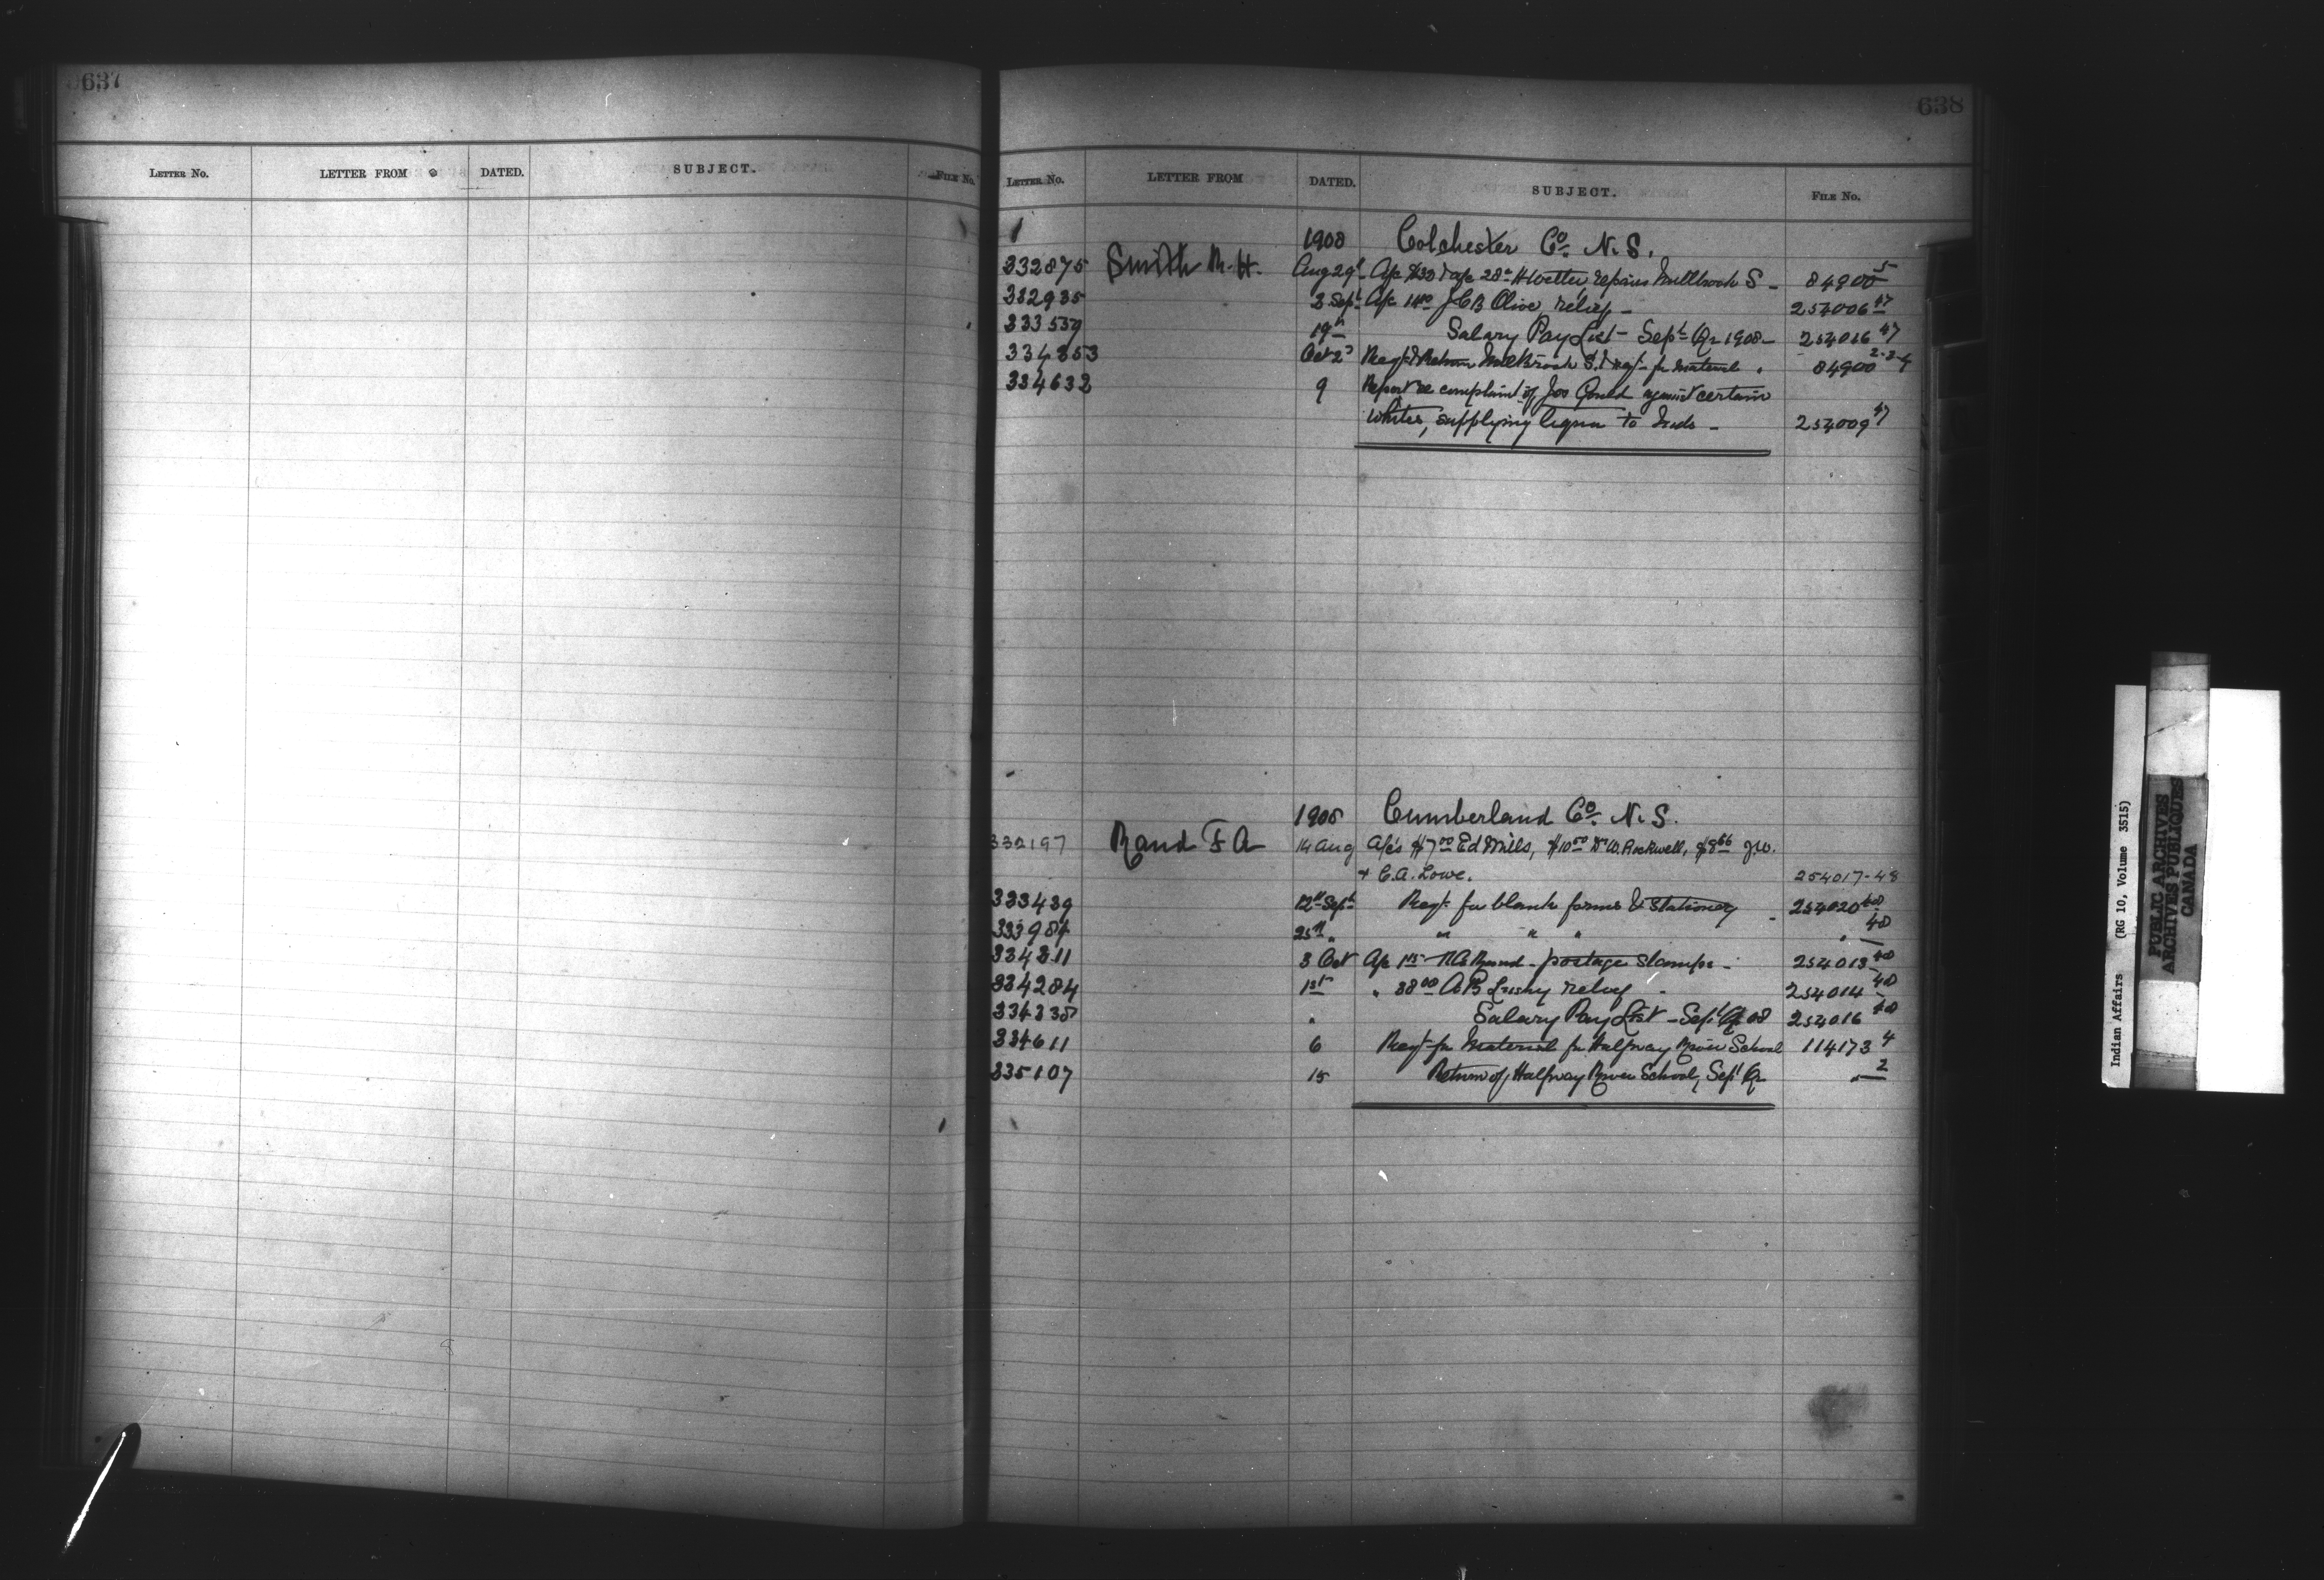 637
LETTER NO. LETTER FROM DATED. SUBJECT. FILE No.
638
LETTER NO. LETTER FROM DATED. SUBJECT. FILE No.
1908 Colchester Co. N. S.
332875 Smith R. H. Aug 29th A/c repairs Millbrook S - 84900-5
332935 3 Sept A/c J C B Olive relief - 254006-47
333539 19th Salary Pay List - Sept Qr 1908 - 254016-47
334353 Oct 2d Millbrook S. & for material 84900 2-3-4
334632 9 Report re complaint of Jos Gould against certain
whites, supplying liquor to Inds - 254009-47
1908 Cumberland Co. N. S.
332197 Rand F A 14 Aug A/c's $7.00 Ed Mills, $10.50 Dr W. Rockwell, $8.56 J.W.
+ C. A. Lowe. 254017-48
333439 12th Sept Reqt. for blank forms & stationery - 254020-48
333984 25th " " " " " 48
334311 3 Oct A/c Rand - postage stamps - 254013-48
334284 1st " 38.00 A B relief - 254014-48
334338 " Salary Pay List - Sept Qr 08 254016-48
334611 6 Reqt for Material for Halfway River School 114173-4
335107 15 Return of Halfway River School, Sept Qr " 2
Indian Affairs (RG 10, Volume 3515)
PUBLIC ARCHIVES
ARCHIVES PUBLIQUES
CANADA